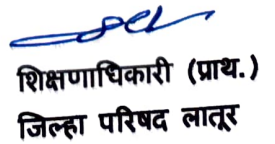 शिक्षणाधिकारी (प्राथ.)
जिल्हा परिषद लातूर